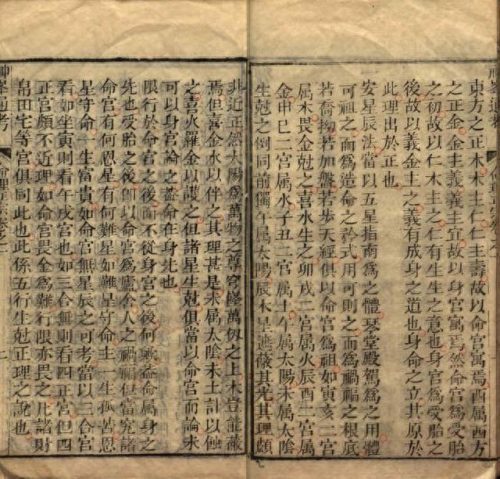 東方之正木木主仁仁主壽故以命宮寓焉酉屬西方
之正金金主義義主宜故以身宮寓焉然命宮爲受胎
之初故以仁木主之仁有生生之意也身宮爲受胎之
後故以義金主之義有成身之道也身命之立其原於
此理出於正也
安星辰法當以五星指南爲之體琴堂殿駕爲之用體
可祖之而爲造命之矜式用可則之而爲禍福之根底
若喬拗若如盤若步天經俱以命宮爲祖如寅亥二宮
屬木畏金尅之喜水生之卯戌二宮屬火辰酉二宮屬
金申巳二宮屬水子丑二宮屬土午屬太陽未屬太陰
生尅之倒同前獨午屬太陽辰木星遮蔽其光其理頗
非近正然太陽爲萬物之尊宮隆萬仞之上木豈能蔽
焉但喜金水以伴之其理甚是未屬太陰木土計以
之喜火羅金以護之但諸星生尅俱當以命宮而論未
可以身宮論之蓋命在身先也
限行於命宮之後而不從身宮之後何歟蓋命屬身之
先也受胎之後卽以命宮爲慮命人之禍福但當究諸
命宮有何恩星有何難星如難星守命主一生疾苦恩
星守命一生富貴如命宮無星辰之可考當以三合宮
看如坐寅則看午戌宮也如三合無則看四正宮但四
正宮頗不近理如命宮畏金爲難行限亦畏之此諸財
帛田宅等宮俱同此也此係五行生尅正理之說也
神峯通考
命理正宗卷之一